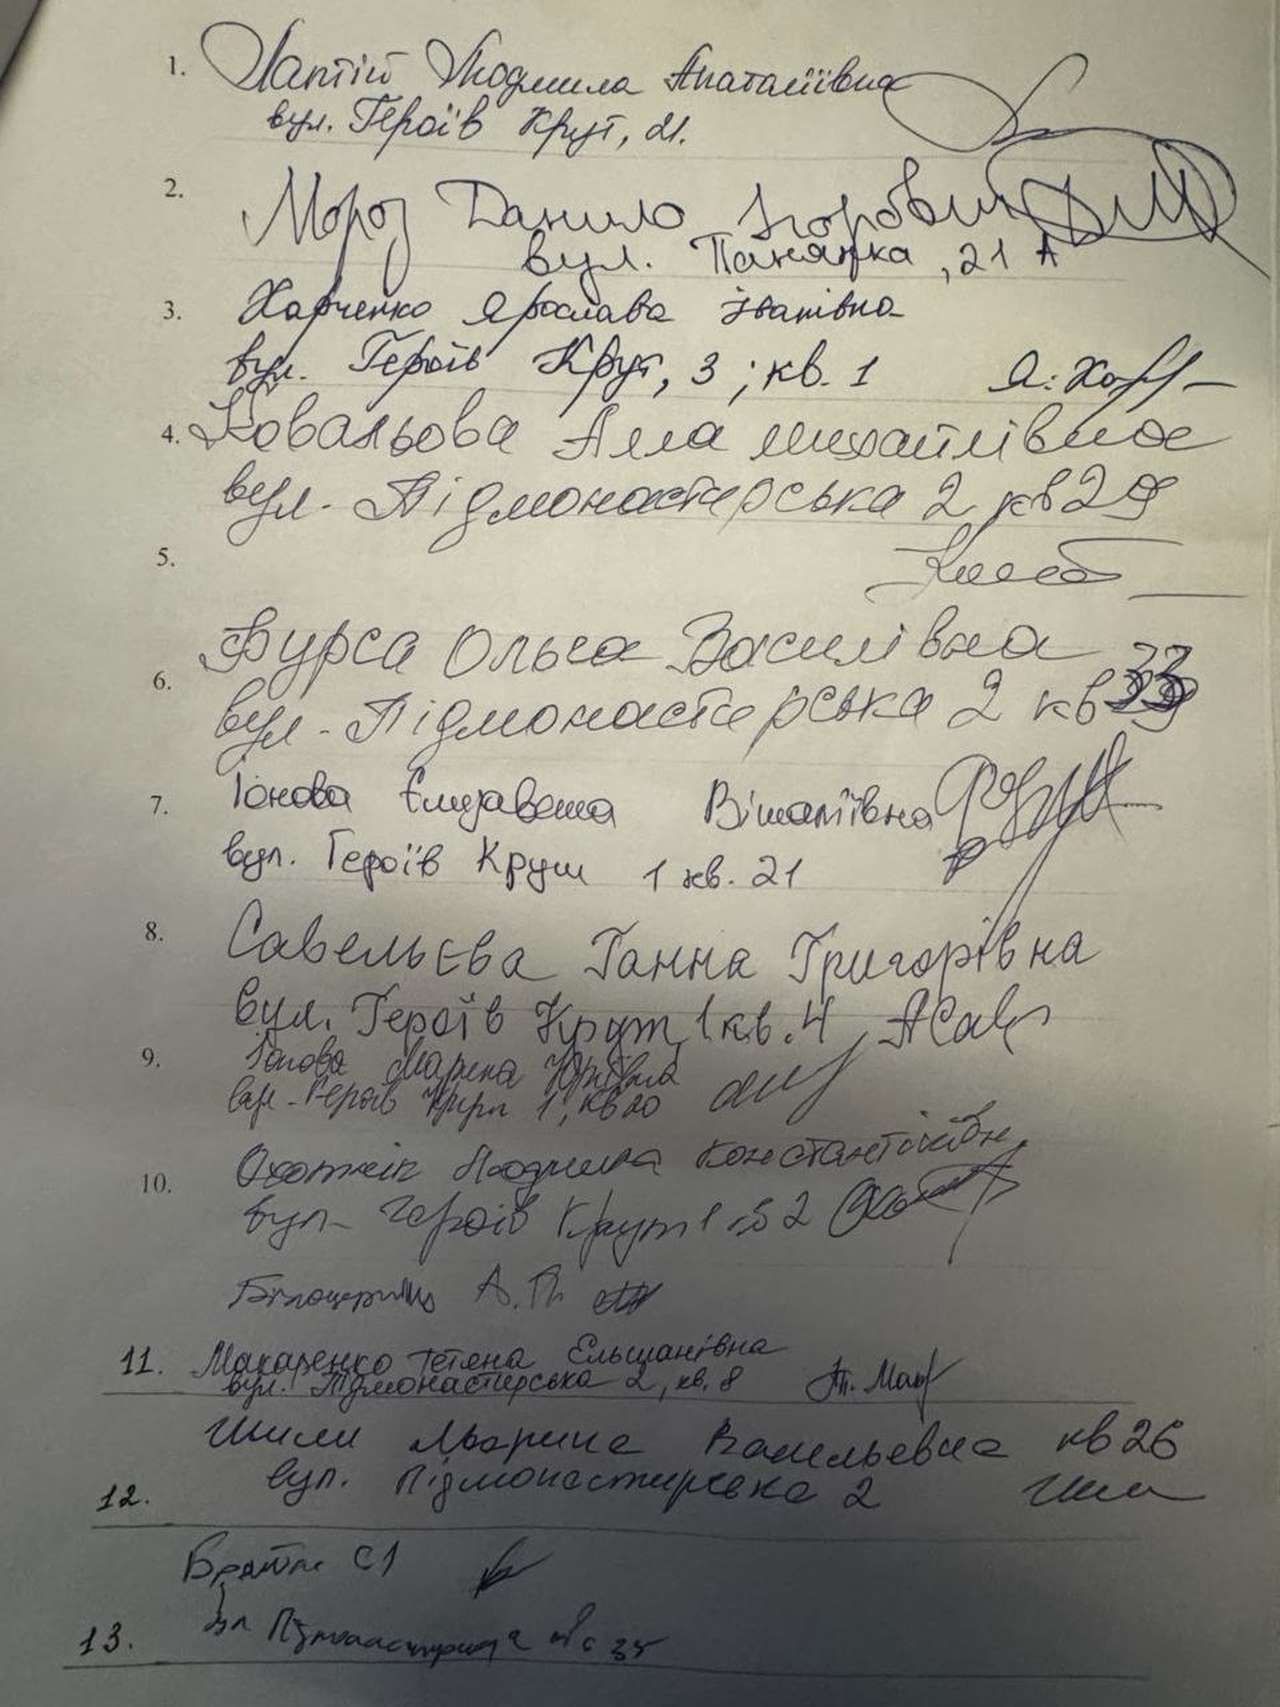 1. Лаптій Людмила Анатоліївна
вул. Героїв Крут, 21.
2. Мороз Данило Ігорович
вул. Панянка, 21 А
3. Харченко Ярослава Іванівна
вул. Героїв Крут, 3; кв. 1 Я. Хар
4. Ковальова Алла Михайлівна
вул. Підмонастирська 2 кв 29
5.
Фурса Ольга Василівна
6. вул. Підмонастирська 2 кв 33
7. Іонова Єлизавета Віталіївна
вул. Героїв Крут 1 кв. 21
8. Савельєва Ганна Григорівна
вул. Героїв Крут, 1 кв. 4 АСав
9. Марина Юріївна
вул. Героїв Крут 1, кв 20
10. Охотнік Людмила Константінівн
вул. Героїв Крут 1 2
А. П.
11. Макаренко Тетяна
вул. Підмонастирська 2, кв. 8 Т. Мак
Шили Марина Васильевна кв 26
12. вул. Підмонастирська 2
С1
13. 35